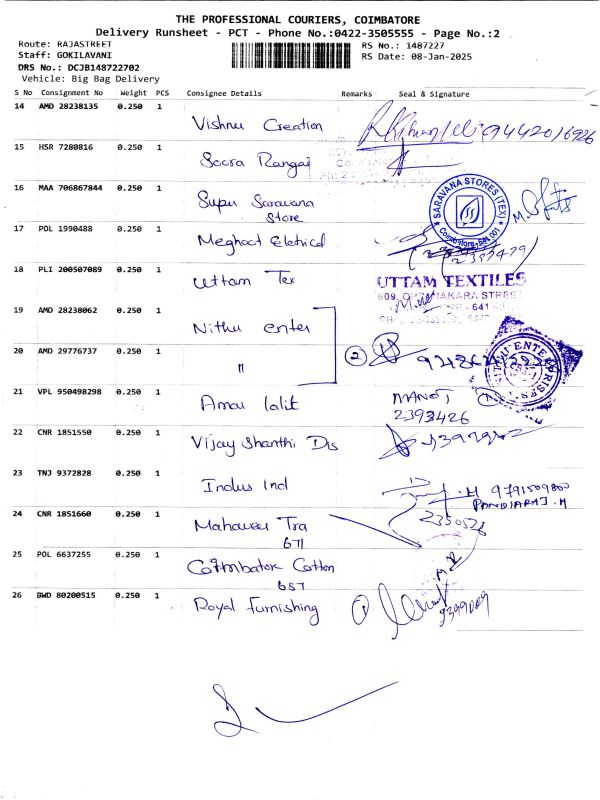 THE PROFESSIONAL COURIERS, COIMBATORE
Delivery Runsheet - PCT - Phone No.:0422-3505555 - Page No.:2
Route: RAJASTREET RS No.: 1487227
Staff: GOKILAVANI RS Date: 08-Jan-2025
DRS No.: DCJB148722702
Vehicle: Big Bag Delivery
S No Consignment No Weight PCS Consignee Details Remarks Seal & Signature
14 AMD 28238135 0.250 1 Vishnu Creation 9442016926
15 HSR 7280816 0.250 1 Soora Rangai
16 MAA 706867844 0.250 1 Supu Saravana
Store
SARAVANA STORES (TEX)
Coimbatore-641 001
17 POL 1990488 0.250 1 Meghoot Eletricd
18 PLI 200507089 0.250 1 Uttam Tex
UTTAM TEXTILES
19 AMD 28238062 0.250 1 Nithu enter
20 AMD 29776737 0.250 1 " 2
ENTERPRISES
21 VPL 950498298 0.250 1 Amar lalit MANOJ
2393426
22 CNR 1851550 0.250 1 Vijay Shanthi Dis
23 TNJ 9372828 0.250 1 Indus Ind 9791509800
PANDIARAJ.M
24 CNR 1851660 0.250 1 Mahaveer Tra 2350528
671
25 POL 6637255 0.250 1 Coimbatore Cotton
657
26 BWD 80200515 0.250 1 Royal Furnishing 1